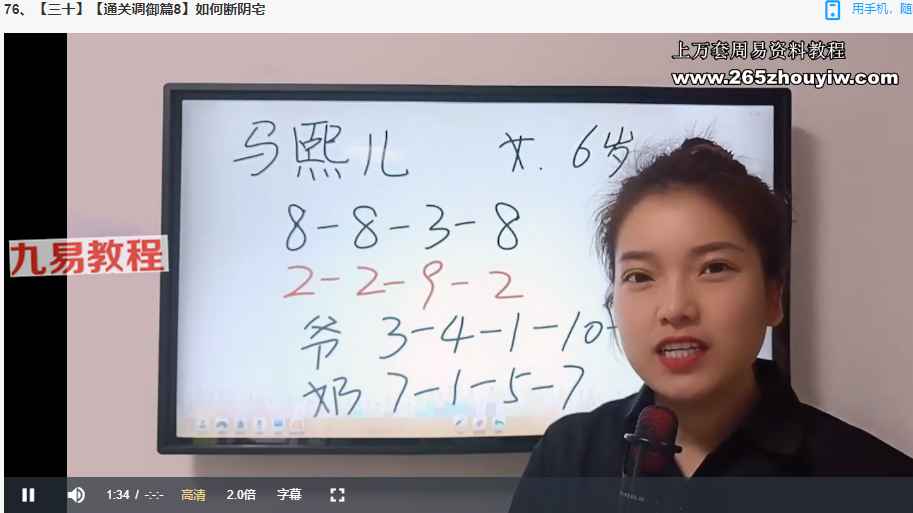 76、【三十】【通关调御篇8】如何断阴宅
用手机，随
上万套周易资料教程
www.265zhouyiw.com
马熙儿 女. 6岁
8-8-3-8
2-2-9-2
爷 3-4-1-10-
奶 7-1-5-7
九易教程
1:34 / -:-:- 高清 2.0倍 字幕